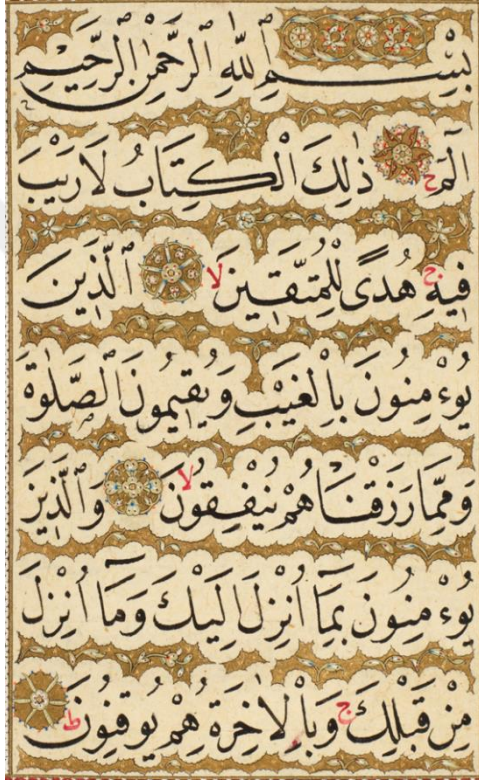 بِسْمِ اللّٰهِ الرَّحْمٰنِ الرَّحِيمِ
الٓمٓ ۚ ذٰلِكَ الْكِتَابُ لَا رَيْبَ
فِيهِ ۛ هُدًى لِلْمُتَّقِينَ ۙ الَّذِينَ
يُؤْمِنُونَ بِالْغَيْبِ وَيُقِيمُونَ الصَّلٰوةَ
وَمِمَّا رَزَقْنَاهُمْ يُنْفِقُونَ ۙ وَالَّذِينَ
يُؤْمِنُونَ بِمَٓا اُنْزِلَ اِلَيْكَ وَمَٓا اُنْزِلَ
مِنْ قَبْلِكَ ۚ وَبِالْاٰخِرَةِ هُمْ يُوقِنُونَ ۜ